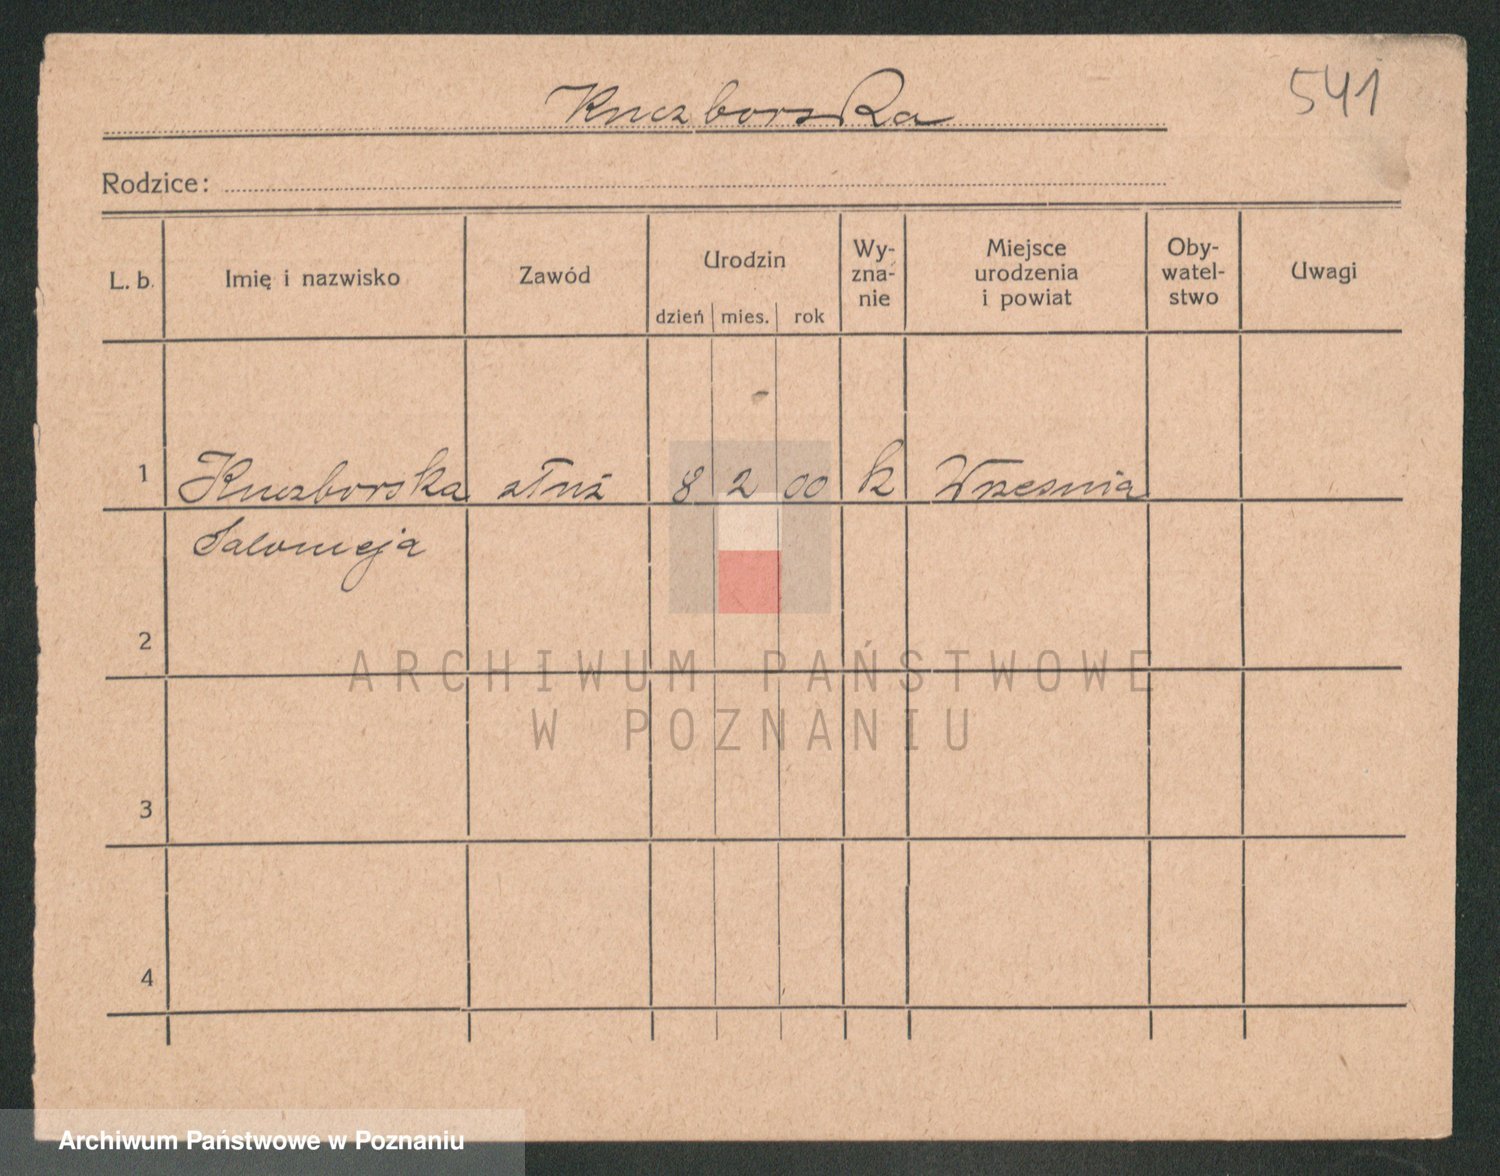 Kuczborska
541
Rodzice:
L. b.
Imię i nazwisko
Zawód
Urodzin
dzień mies. rok
Wy-
zna-
nie
Miejsce
urodzenia
i powiat
Oby-
watel-
stwo
Uwagi
1 Kuczborska służ 8 2 00 k Wrzesnia
Salomeja
2
3
4
ARCHIWUM PAŃSTWOWE
W POZNANIU
Archiwum Państwowe w Poznaniu